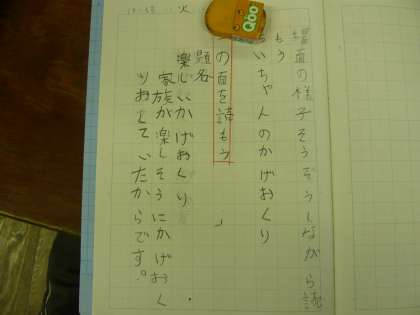 場面の様子そうぞうしながら読
もう
いちゃんのかげおくり
の面を読もう」
題名
楽しいかげおくり
家族が楽しそうにかげおく
りおしていたからです。
火
Qoo